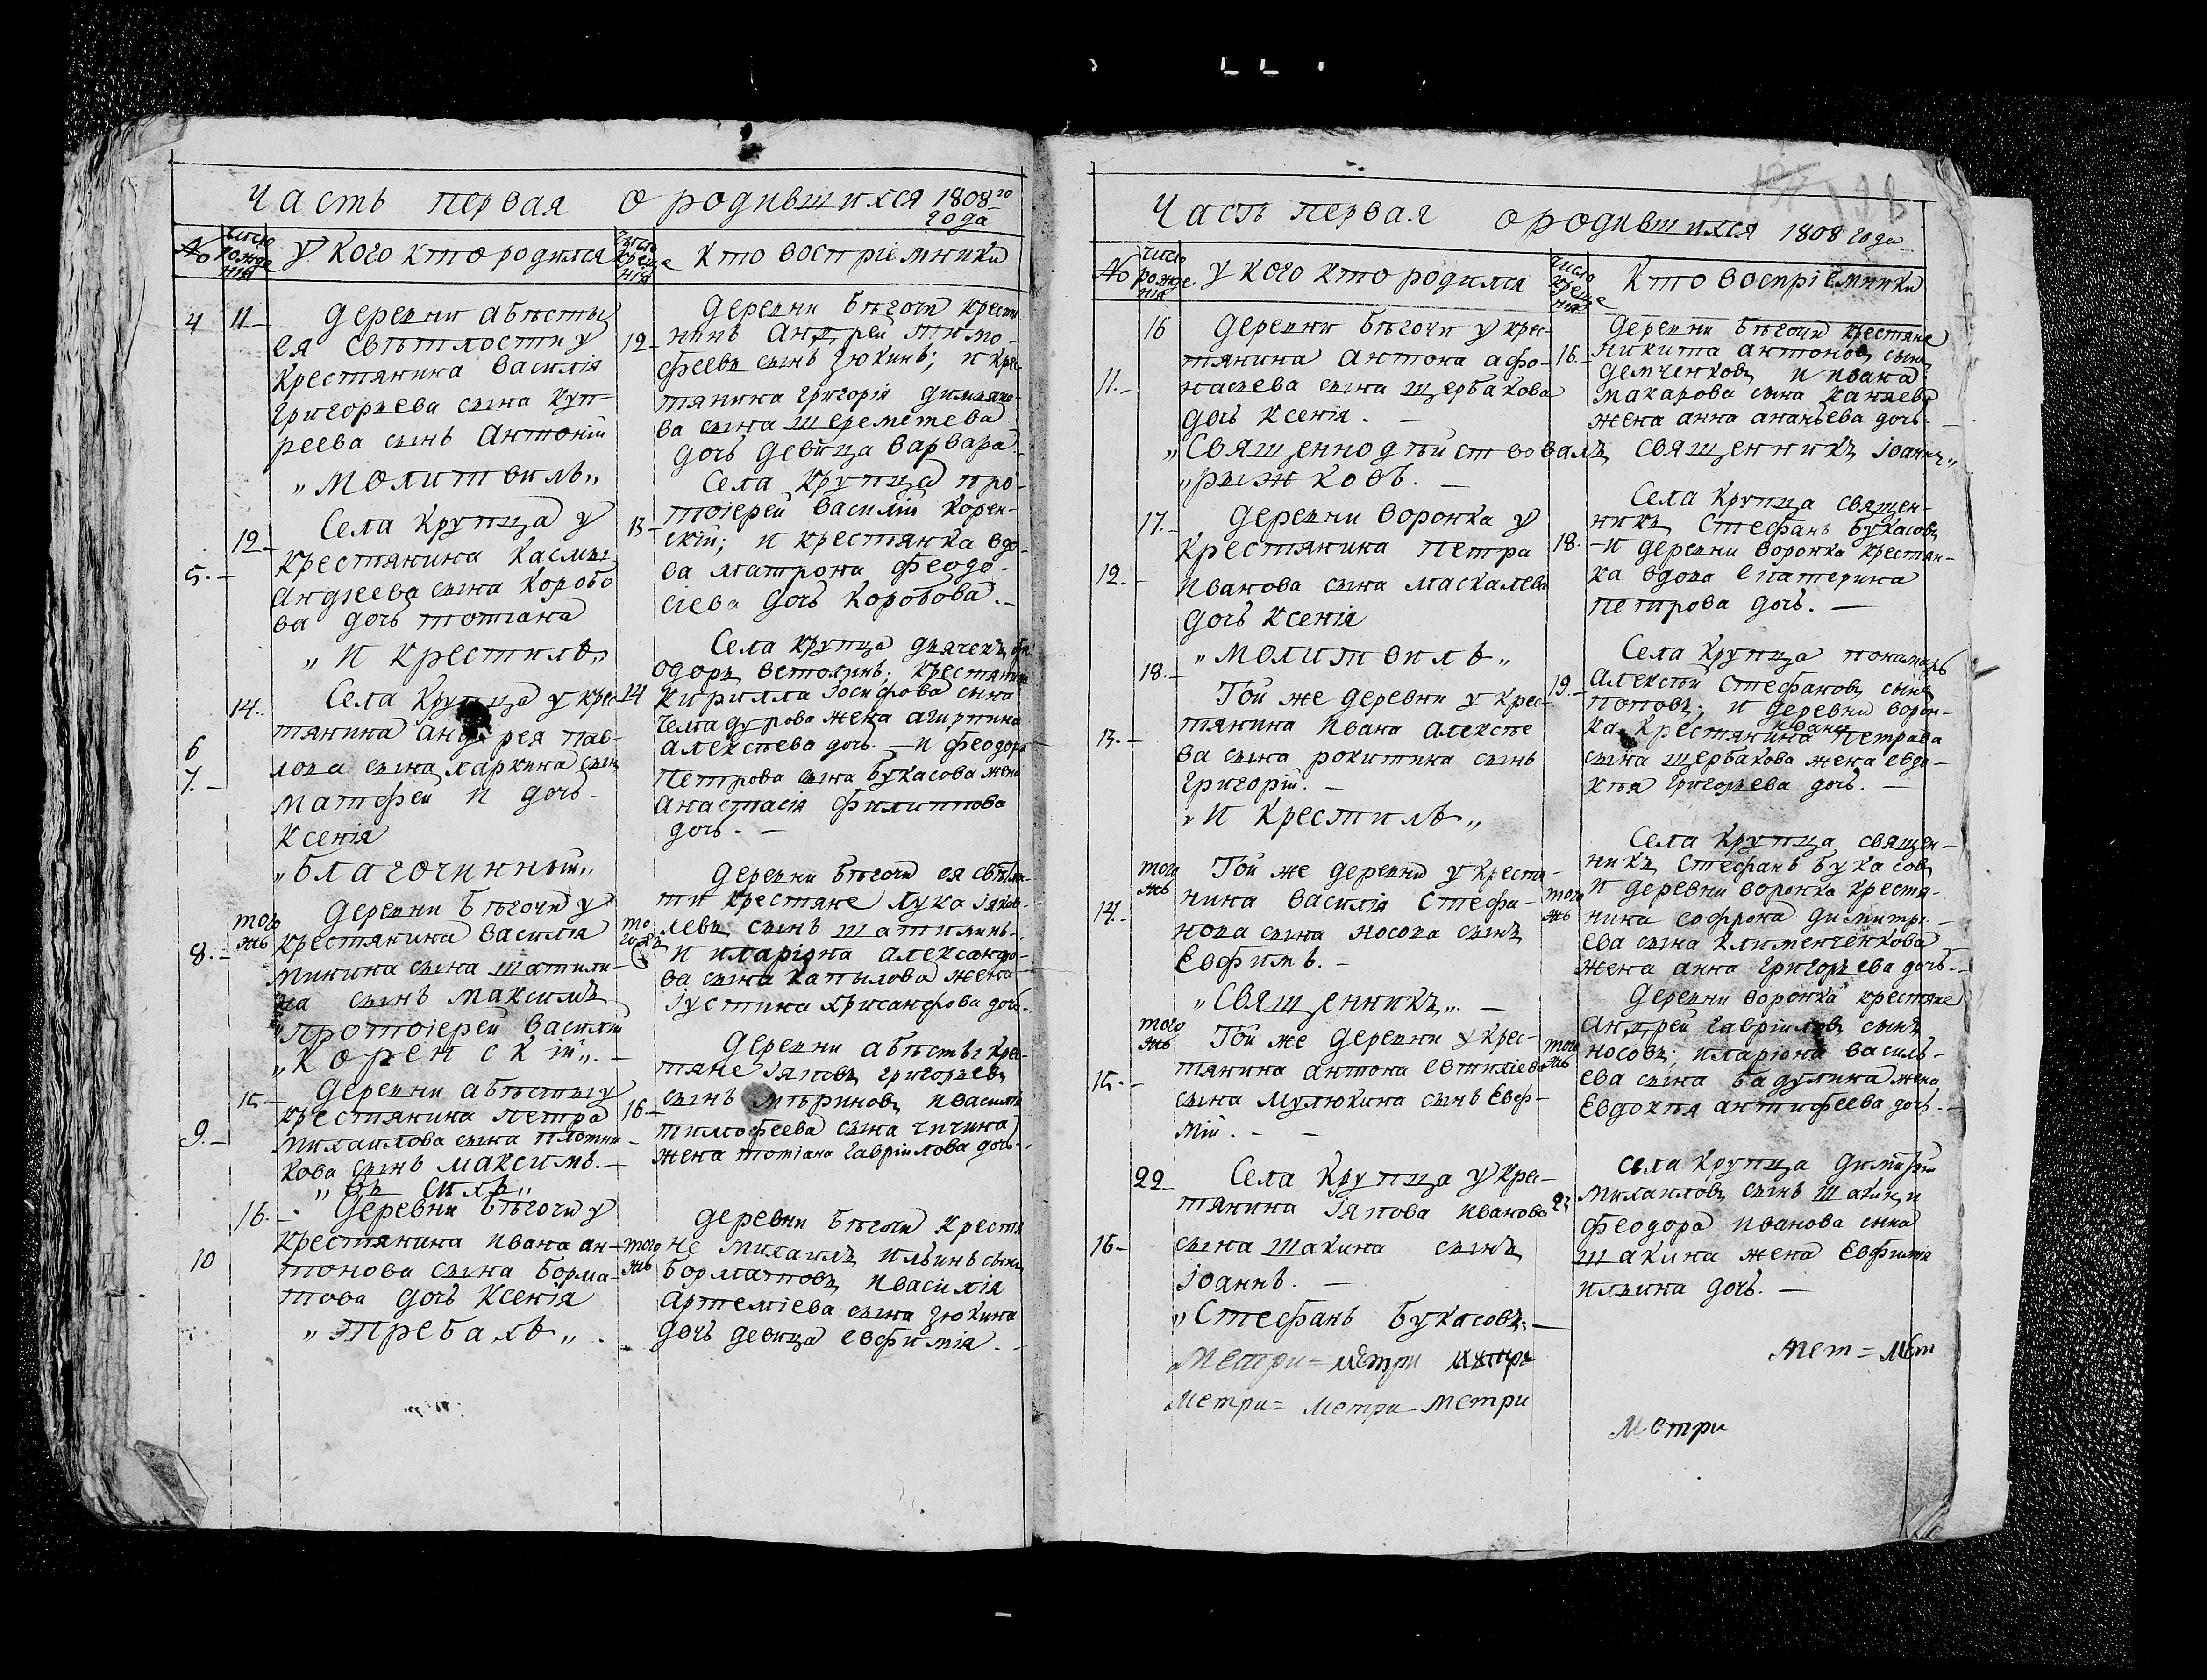 Часть первая о родившихся 1808го
года
№
число рожде нія
У кого кто родился
число креще нія
Кто воспріемники
4
11.
деревни абѣсты
ея свѣтлости у
крестянина василія
григорьева сына куп-
реева сынъ антоній
„молитвилъ„
12
деревни бѣгочи крестя
нинъ андрей тимо-
феевъ сынъ зюкинъ; и крес
тянина григорія димьяно-
ва сына шереметева
дочь девица варвара.
5.
12
Села крупца у
крестянина касмы
андреева сына коробо
ва дочь тотіана
„и крестилъ„
13
Села крупца про-
тоіерей василій корен-
скій; и крестянка вдо-
ва матрона феодо-
сіева дочь коробова.
6
7.
14.
Села крупца у крес
тянина андрея пав-
лова сына харкина сынъ
матфей и дочь
ксенія
„благочинный„
14
Села крупца дьячекъ
одоръ
кирилла іосифова сына
чемадурова жена агирпина
алексѣева дочь. и феодора
петрова сына букасова жена
анастасія филиппова
дочь.
8.
того жъ
деревни бѣгочи у
крестянина василія
минина сына шатили-
на сынъ максимъ
„протоіерей василій
„коренскій„.
то гожъ
деревни бѣгочи ея свѣтлос
ти крестяне лука іяков-
левъ сынъ шатилинъ.
и иларіона александро-
ва сына капылова жена
іустина хрисанфова дочь.
9.
15
деревни абѣсты у
крестянина петра
михаилова сына плотни-
кова сынъ максимъ.
16
деревни абѣсты крес-
тяне іяковъ григорьевъ
сынъ мѣриновъ и василія
тимофеева сына чичина
жена тотіана гавріилова дочь.
10
16.
деревни бѣгочи у
крестянина ивана ан-
тонова сына борма-
това дочь ксенія
„требахъ„
того жъ
деревни бѣгочи крестя
не михаилъ ильинъ сынъ
борматовъ и василія
артеміева сына зюкина
дочь девица евфимія.
Часть первая о родившихся 1808 года
№
число рожде нія
У кого кто родился
число креще нія
Кто воспріемники
11.
16
деревни бѣгочи у крес-
тянина антона афо-
насьева сына щербакова
дочь ксенія.
„Священнодѣйствовалъ священникъ іоаннъ„
„рыжковъ.
16.
деревни бѣгочи крестяне
никита антоновъ сынъ
демченковъ и ивана
макарова сына каняева
жена анна ананьева дочь.
12.
17.
деревни воронка у
крестянина петра
иванова сына маскалева
дочь ксенія
„молитвилъ„
18.
Села крупца священ-
никъ стефанъ букасовъ
и деревни воронка крестян-
ка вдова екатерина
петрова дочь.
13.
18.
Той же деревни у крес-
тянина ивана алексѣе
ва сына рокитина сынъ
григорій.
„и крестилъ„
19.
Села крупца понамарь
алексѣй стефановъ сынъ
поповъ; и деревни ворон-
ка крестянина ивана петрава
сына щербакова жена евдо-
кѣя григорьева дочь.
14.
того жъ
Той же деревни у крестя-
нина василія стефа-
нова сына носова сынъ
Евфимъ.
„Священникъ„.
того жъ
Села крупца священ-
никъ стефанъ букасовъ
и деревни воронка крестя-
нина софрона димитрі-
ева сына клименченкова
жена анна григорьева дочь.
15.
того жъ
Той же деревни у крес-
тянина антона евтихіева
сына мулюкина сынъ Евф-
мій.
того жъ
деревни воронка крестяне
андрей гавріиловъ сынъ
носовъ; иларіона василь-
ева сына бадулина жена
Евдокѣя антифеева дочь.
16.
22
Села крупца у крес-
тянина іякова иванова
сына шакина сынъ
іоаннъ.
„Стефанъ букасовъ„
села крупца димитрій
михаиловъ сынъ шакин, и
феодора иванова сына
шакина жена Евфимія
ильина дочь.
Метри= метри
мет = мет
Метри= метри метри
Метри